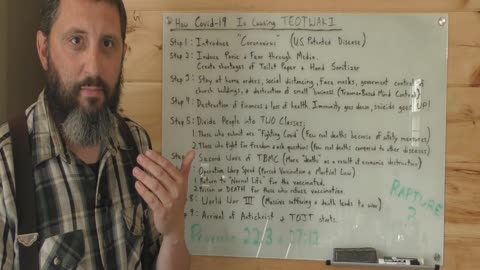 How Covid-19 Is Causing TEOTWAKI
Step 1: Introduce "Coronavirus" (U.S. Patented Disease)
Step 2: Induce Panic & Fear through Media.
Create shortages of Toilet Paper & Hand Sanitizer
Step 3: Stay at home orders, social distancing, face masks, government control of
church buildings, & destruction of small business (Trauma-Based Mind Control)
Step 4: Destruction of finances & loss of health. Immunity goes down, suicide goes UP!
Step 5: Divide People into TWO Classes:
1. Those who submit are "Fighting Covid" (Few real deaths because of safety measures)
2. Those who fight for freedom & ask questions (Few real deaths comorbid to other diseases)
Step Second Wave of TBMC (More "deaths" as a result of economic destruction)
: Operation Warp Speed (Forced Vaccination & Martial Law)
1. Return to "Normal Life" for the vaccinated.
2. Prison or DEATH for those who refuse vaccination.
8: World War III (Massive suffering & death leads to war)
9: Arrival of Antichrist & TOJT starts.
RAPTURE
?
Proverbs 22:3 & 27:12